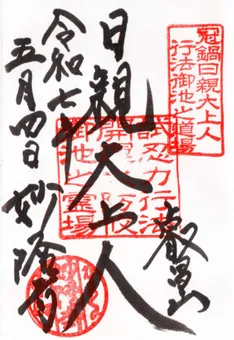 冠鍋日親大上人
行法御池之道場
叡昌山
日親大上人
令和七年
五月四日 妙隆寺
御池之霊場